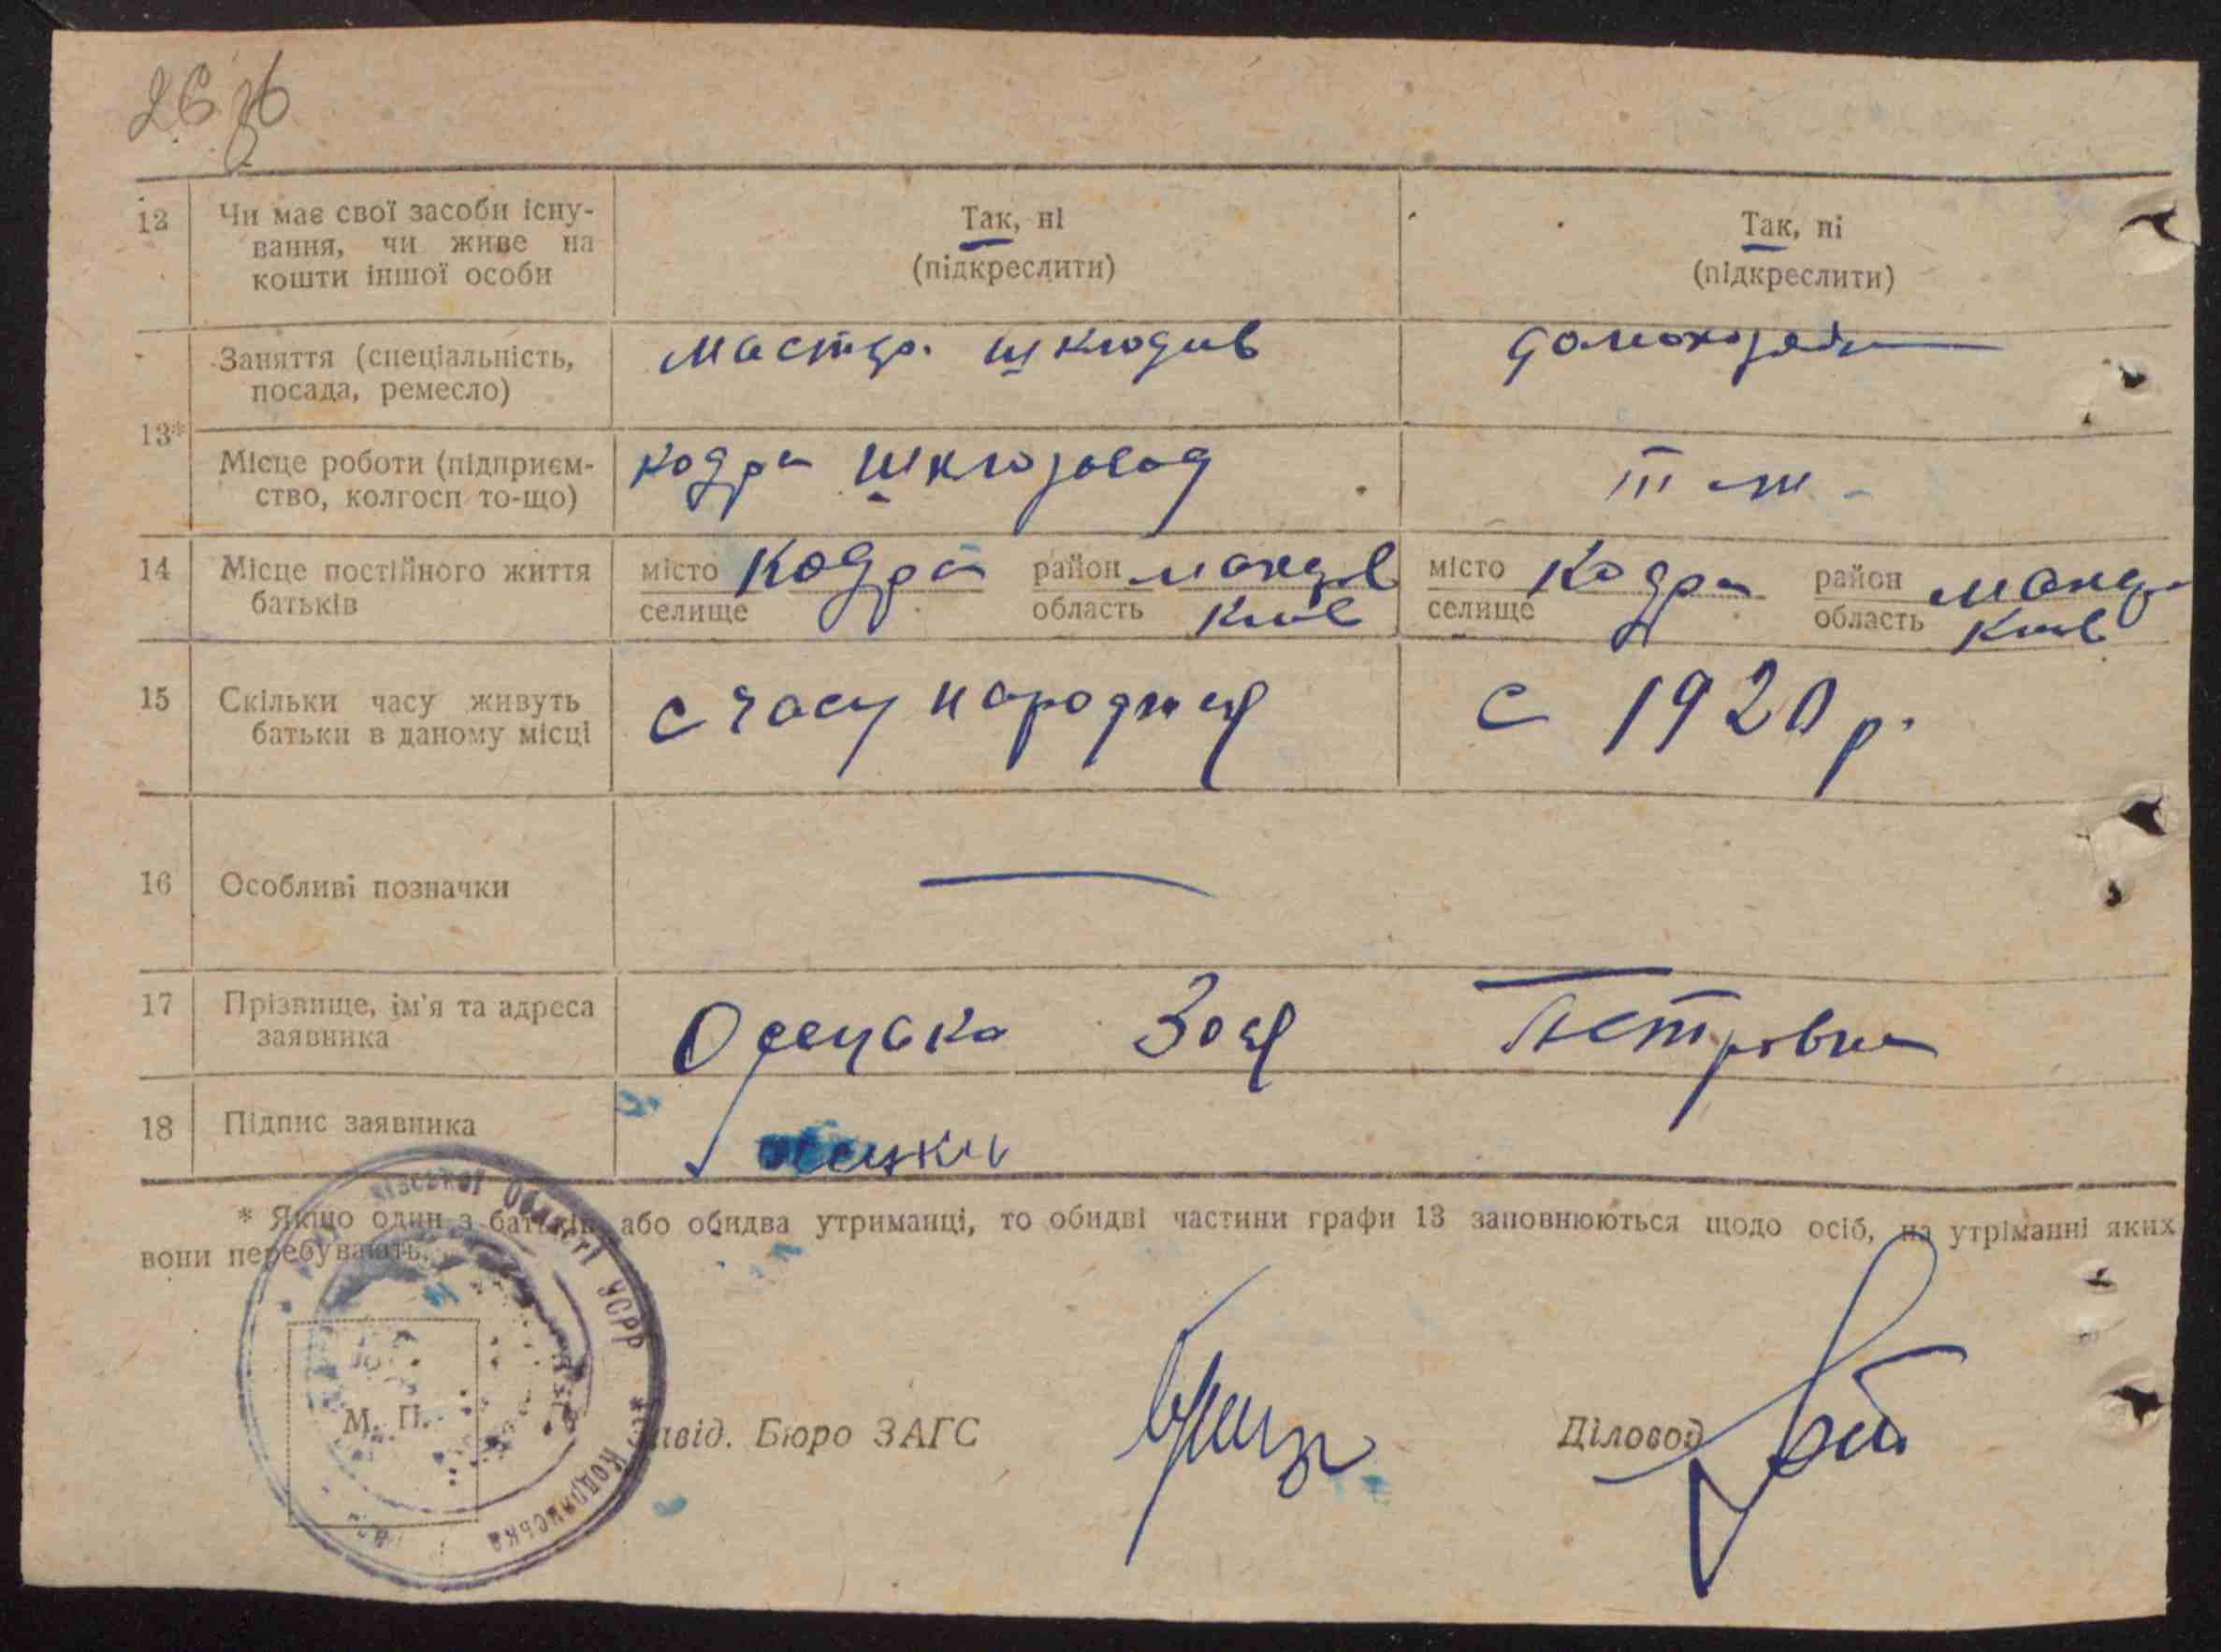 12 Чи має свої засоби існу-
вання, чи живе на
кошти іншої особи
Так, ні
(підкреслити)
Так, ні
(підкреслити)
13*
Заняття (спеціальність,
посада, ремесло)
шклодув
Місце роботи (підприєм-
ство, колгосп то-що)
Кодра шклозавод
14 Місце постійного життя
батьків
місто Кодра район
селище область Київ
місто Кодра район
селище область Київ
15 Скільки часу живуть
батьки в даному місці
с часу
с 1920 р.
16 Особливі позначки
17 Прізвище, ім'я та адреса
заявника
Зоя Петровна
18 Підпис заявника
* Якщо один з батьків або обидва утриманці, то обидві частини графи 13 заповнюються щодо осіб, на утріманні яких
вони перебувають.
Области УСРР
Кодрянська
М. П.
Бюро ЗАГС
Діловод